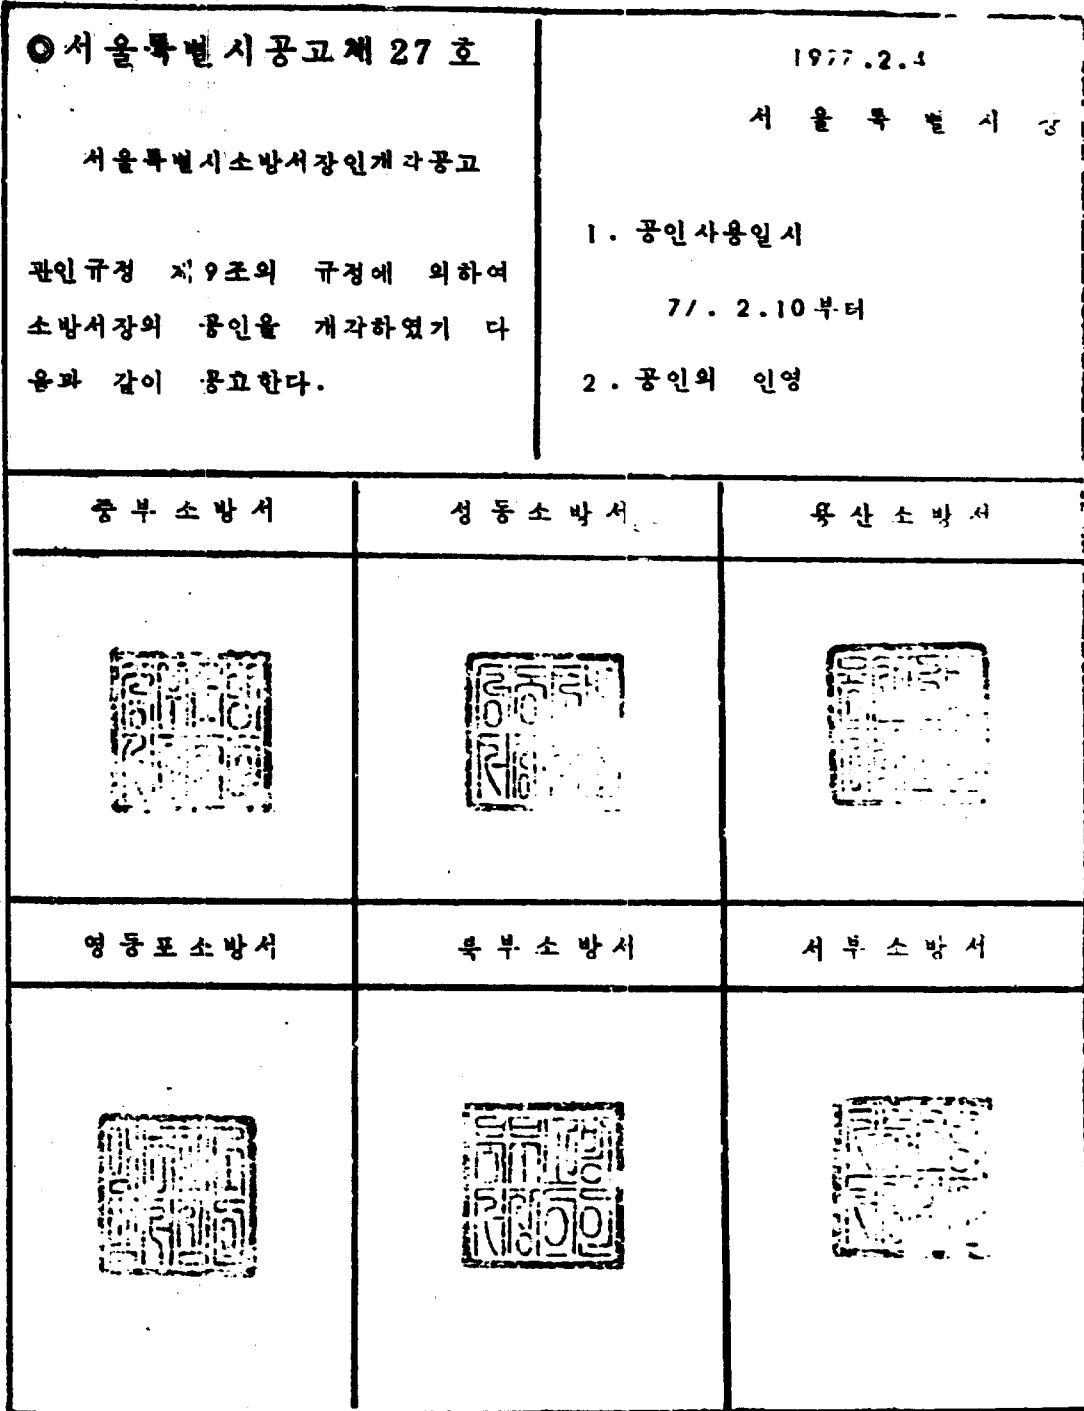 ◎서울특별시공고제 27 호
서울특별시소방서장인개각공고
관인규정 제9조의 규정에 의하여
소방서장의 공인을 개각하였기 다
음과 같이 공고한다.
1977.2.
서 울 특 별 시 장
1. 공인사용일시
2.10부터
2. 공인의 인영
중부소방서
성동소방서
용산소방서
영동포소방서
북부소방서
서부소방서